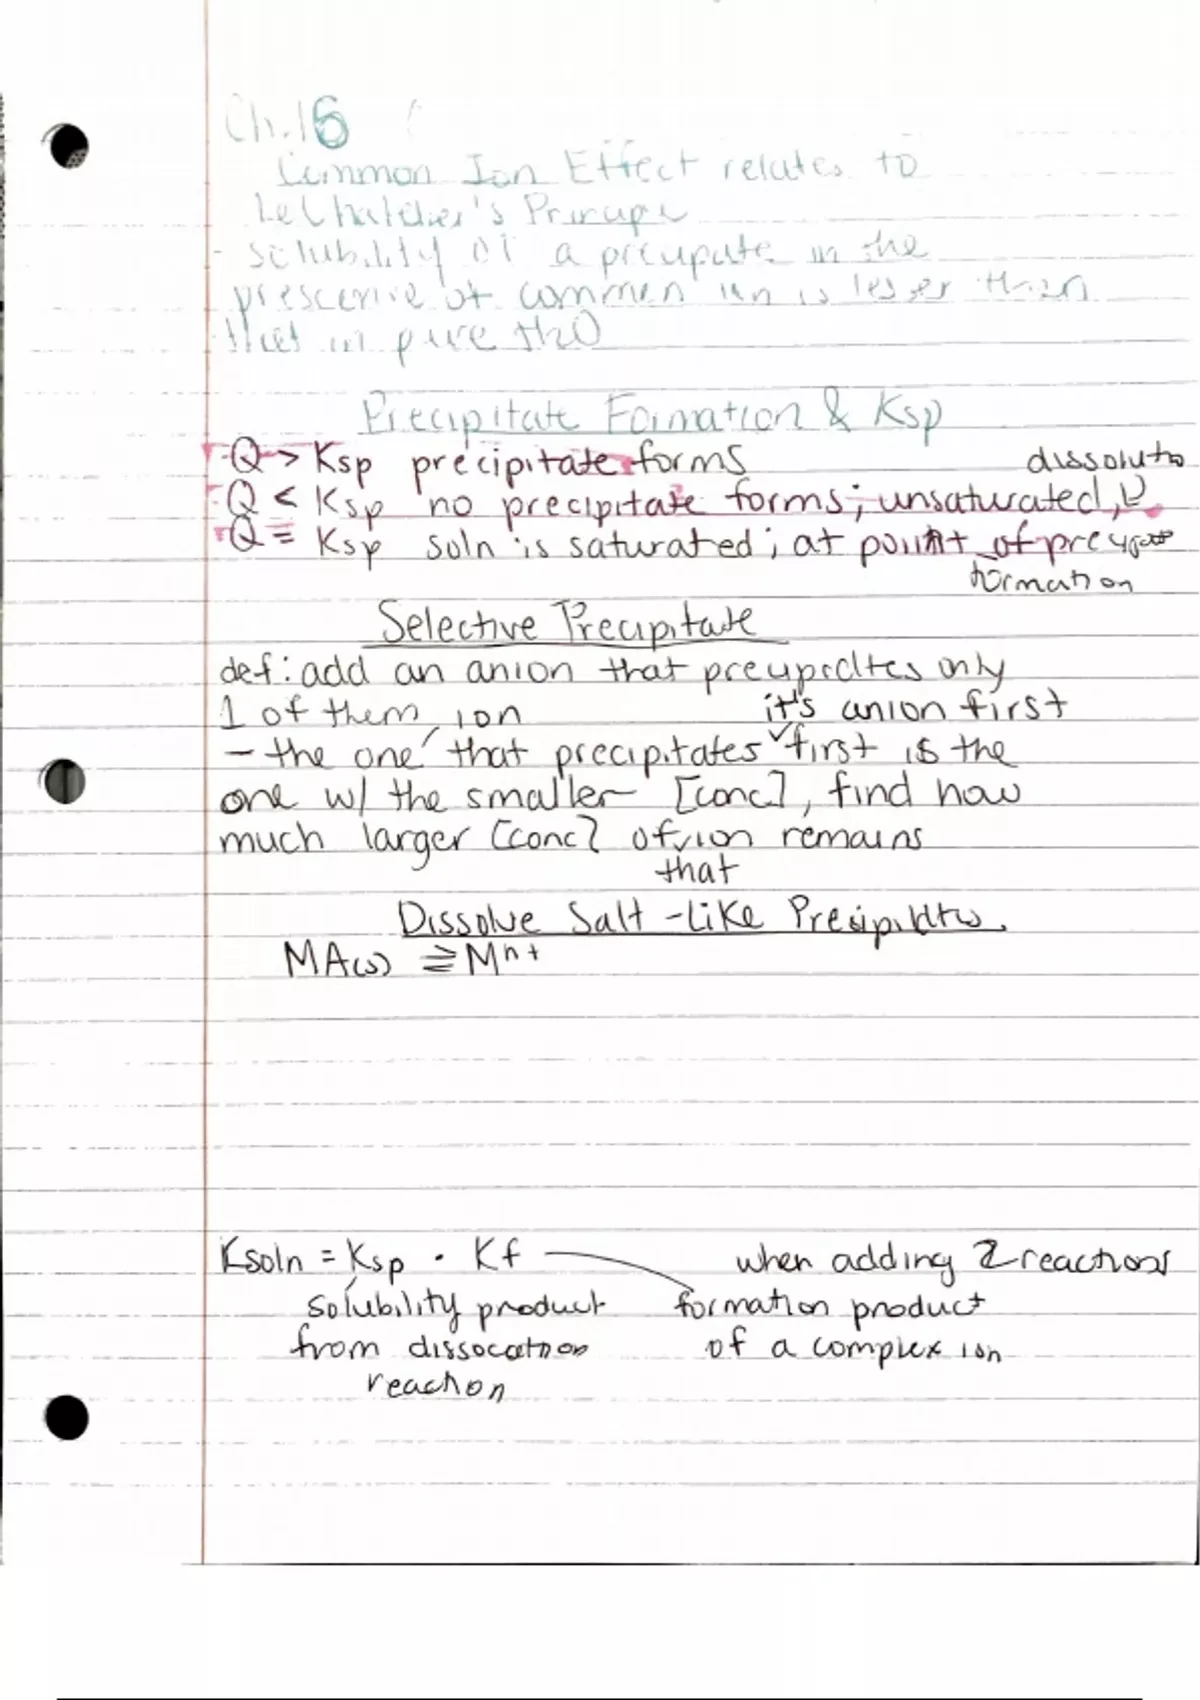 Ch.16
Common Ion Effect relates to
LeChatelier's Principle
- solubility of a precipate in the
prescence of common ion is lesser than
that in pure H2O
Precipitate Formation & Ksp
- Q > Ksp precipitate forms
dissolution
- Q < Ksp no precipitate forms; unsaturated,
- Q = Ksp soln is saturated; at point of
formation
Selective Precipitate
def: add an anion that precipitates only
1 of them ion it's anion first
- the one that precipitates first is the
one w/ the smaller [conc], find how
much larger [conc] of ion remains
that
Dissolve Salt-Like Precipitates.
MA(s) ⇌ Mn+
Ksoln = Ksp · Kf when adding 2 reactions
solubility product formation product
from dissocation of a complex ion
reaction